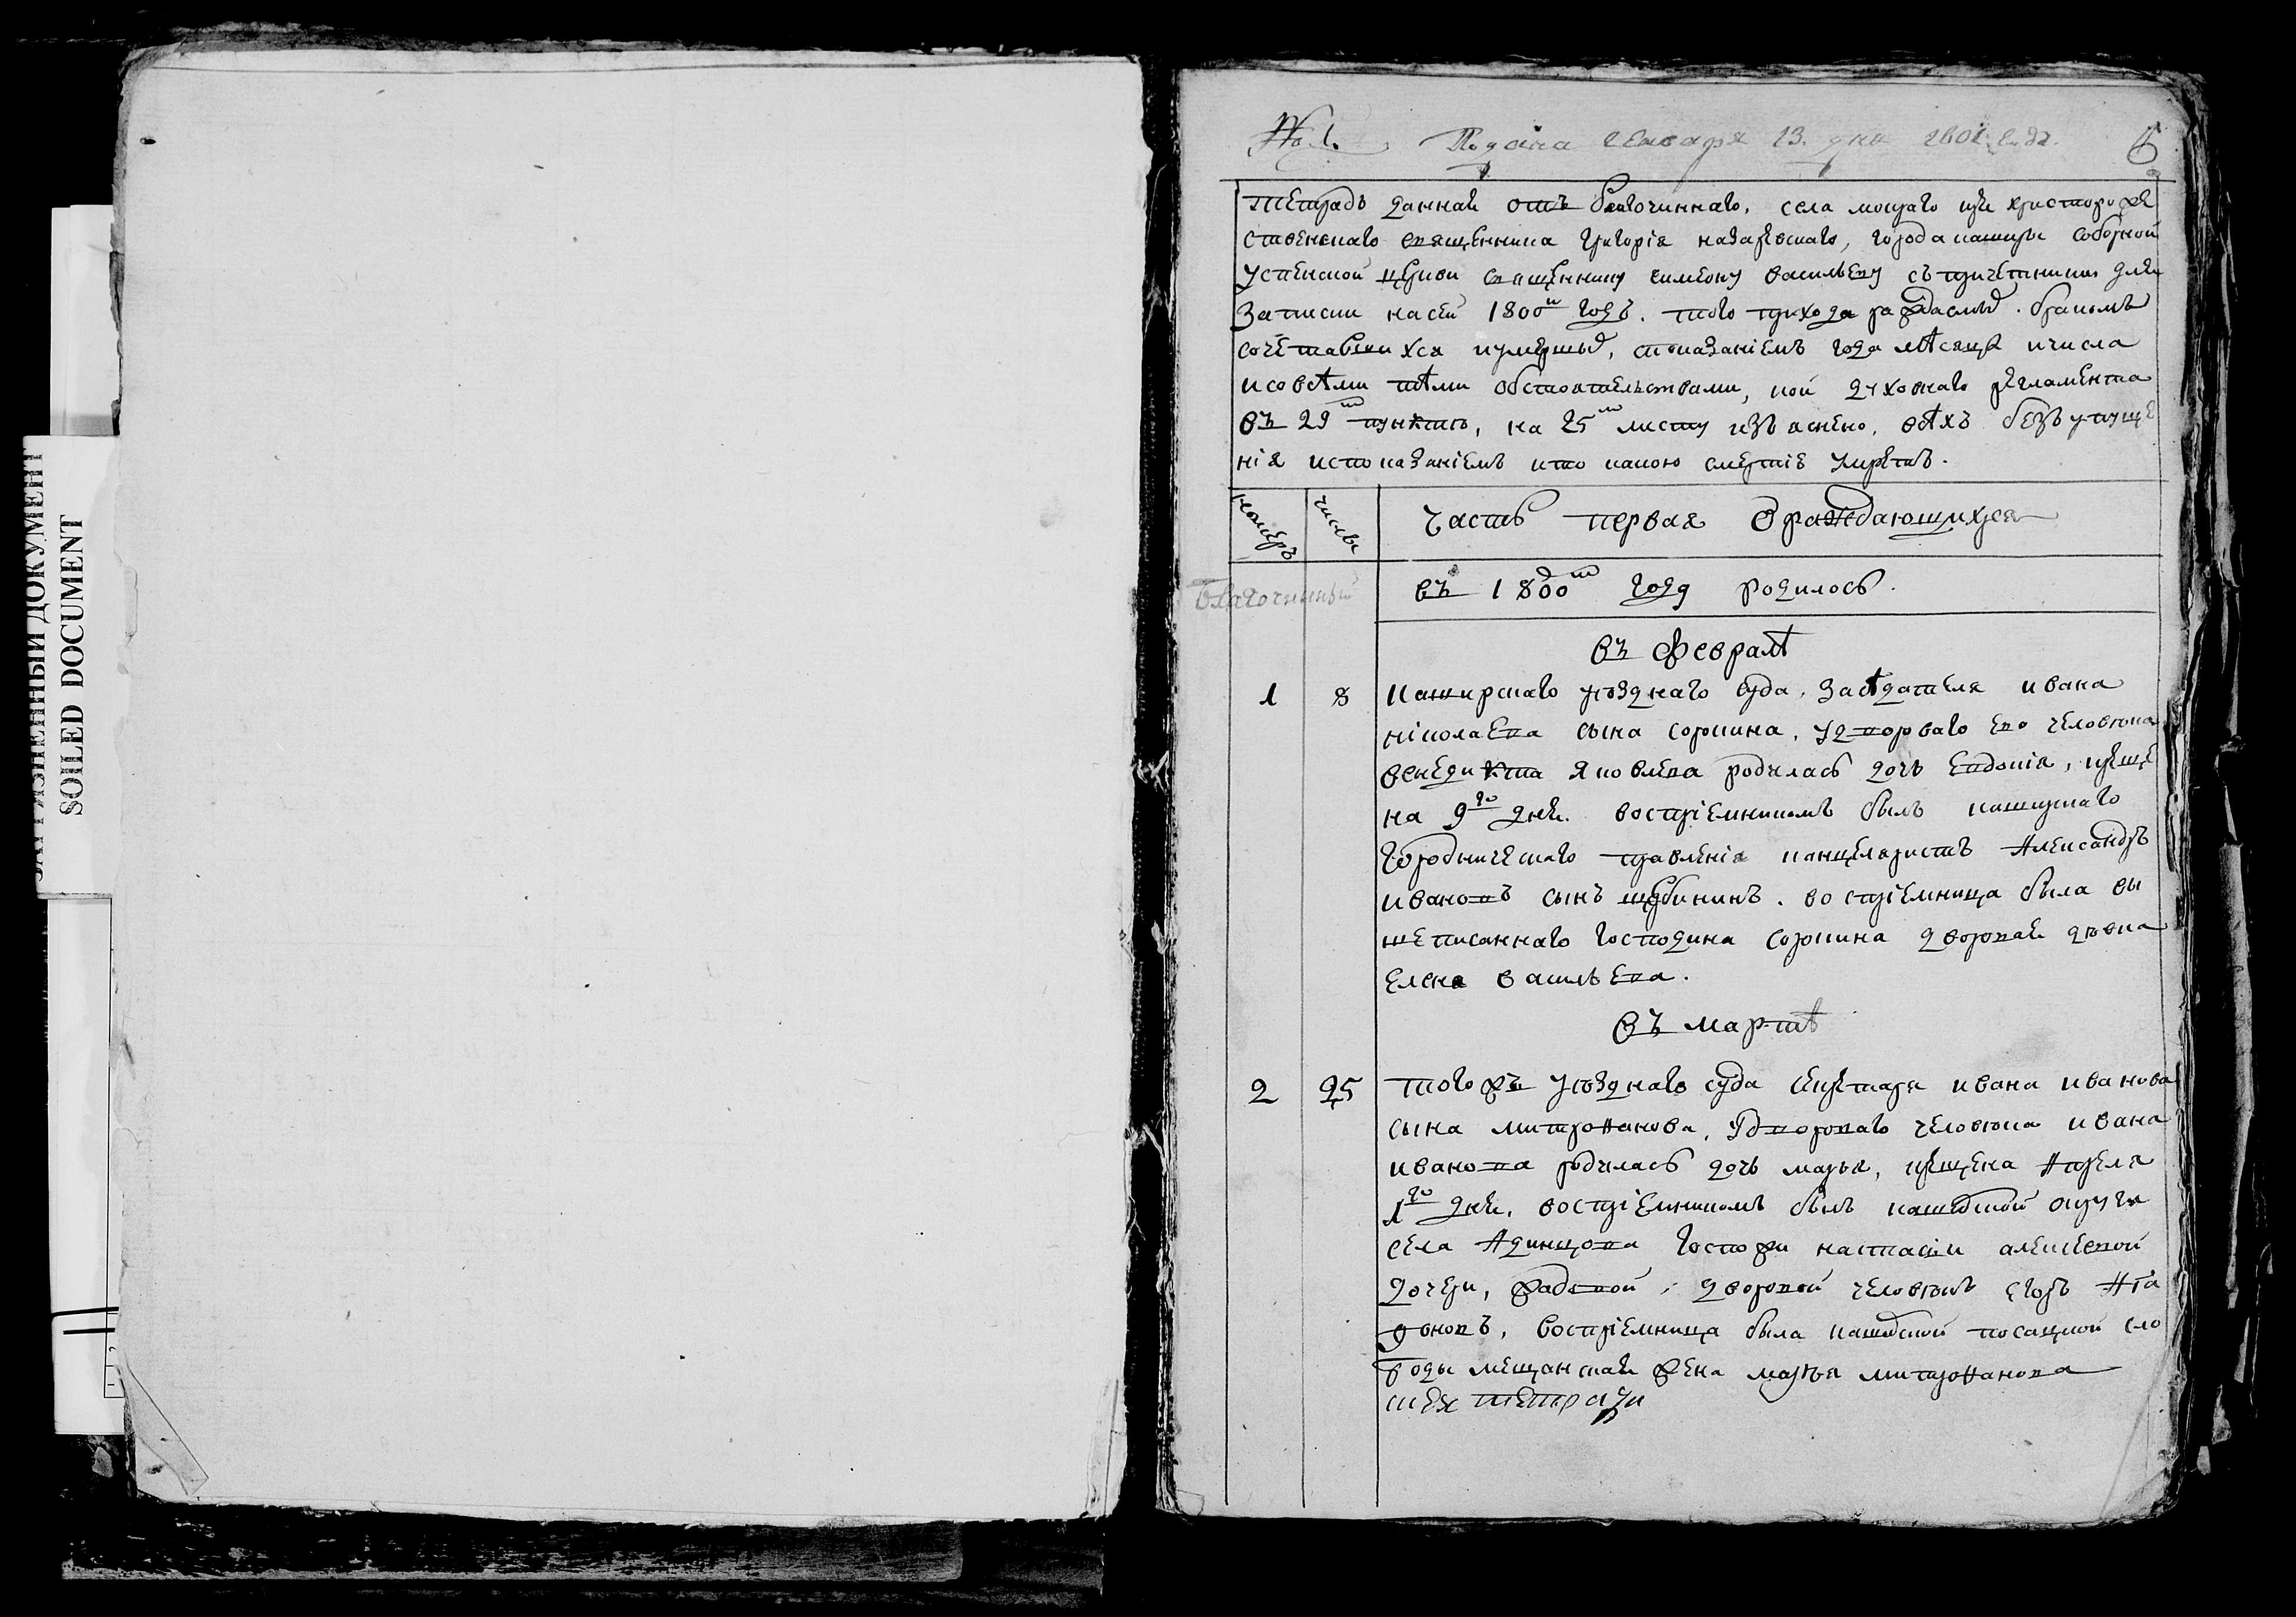 ЗАГРЯЗНЕННЫЙ ДОКУМЕНТ
SOILED DOCUMENT
№ 1. Подана генваря 13. дня 1801 года.
тетрадь данная отъ благочиннаго, села моцкаго цркви христорожде
ственскаго священника григорія назаревскаго, города каширы соборной
успенской церкви священнику симеону васильеву съ причетники для
записки на сей 1800й годъ. того прихода раждаемыхъ. бракомъ
сочетавшихся иумершихъ, споказаніемъ года мѣсяца ичисла
исовсѣми тѣми обстоятельствами, кои духовнаго регламента
въ 29м пунктѣ, на 25м листу изъяснено, всѣхъ безъ упуще
нія испоказаніемъ кто какою смертію умретъ.
номеръ числы Часть первая о раждающихся
Благочинный въ 1800м году родилось.
въ февралѣ
1 8 каширскаго уѣзднаго суда, засѣдателя ивана
николаева сына сорокина, у дворваго ево человѣка
венедикта яковлева родилась дочь евдокія, креще
на 9го дня. воспріемникомъ былъ каширскаго
городническаго правленія канцеляристъ Александръ
ивановъ сынъ шубининъ. воспріемница была вы
шеписаннаго господина сорокина дворовая дѣвка
елена васильева.
въ мартѣ
2 25 тогожъ уѣзднаго суда секретаря ивана иванова
сына митрофанова, у двороваго человѣка ивана
иванова родилась дочь марья, крещена Апреля
1го дня, воспріемникомъ былъ каширской округи
села Адинцова госпожи настасьи алексеевой
дочери, дворовой человѣкъ егоръ Ага
фоновъ, воспріемница была каширской посацкой сло
боды мещанская жена марья митрофанова
сей тетради